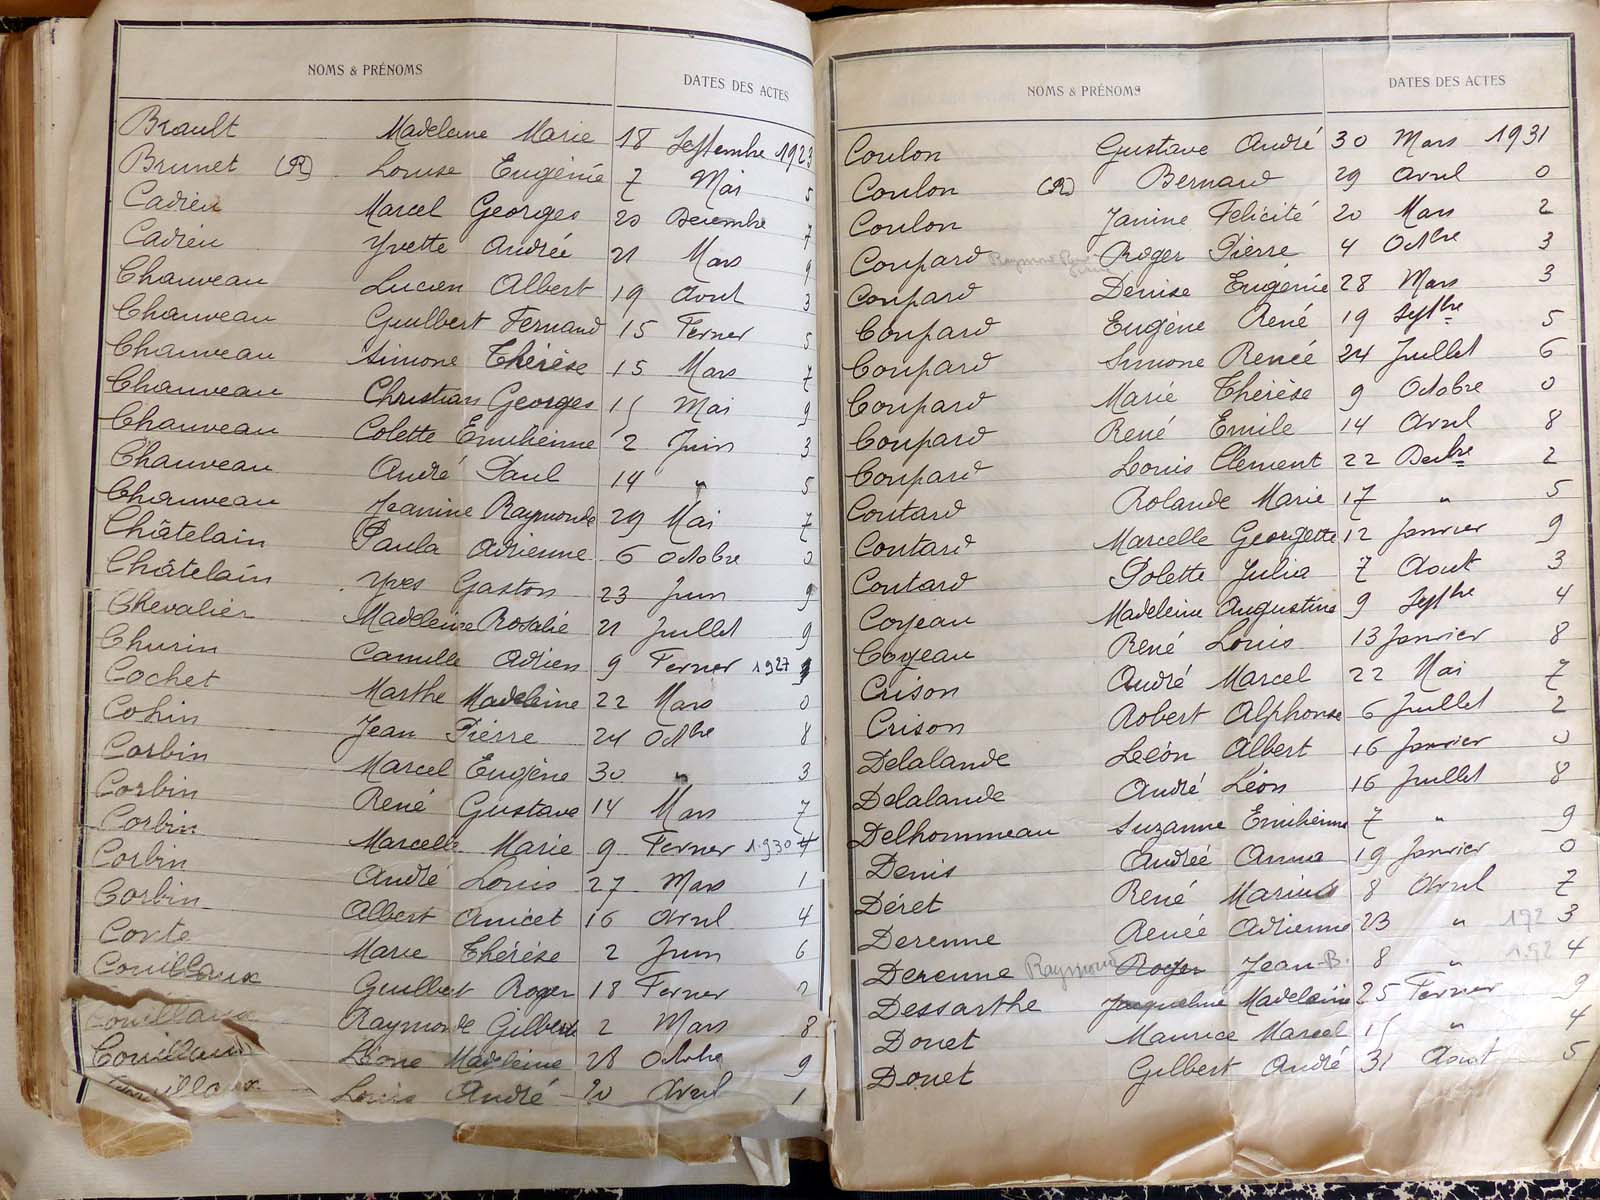 NOMS & PRÉNOMS DATES DES ACTES
Brault Madeleine Marie 18 Septembre 1923
Brunet (R) Louise Eugénie 7 Mai 5
Cadieu Marcel Georges 20 Decembre 7
Cadieu Yvette Andrée 21 Mars 9
Chauveau Lucien Albert 19 Avril 3
Chauveau Guilbert Fernand 15 Fevrier 5
Chauveau Simone Thérèse 15 Mars 7
Chauveau Christian Georges 15 Mai 9
Chauveau Colette Emilienne 2 Juin 3
Chauveau André Paul 14 " 5
Chauveau Jeanine Raymonde 29 Mai 7
Châtelain Paula Adrienne 6 Octobre 0
Châtelain Yves Gaston 23 Juin 9
Chevalier Madeleine Rosalie 21 Juillet 9
Churin Camille Adrien 9 Fevrier 1927
Cochet Marthe Madeleine 22 Mars 0
Cohin Jean Pierre 24 Octbre 8
Corbin Marcel Eugène 30 " 3
Corbin René Gustave 14 Mars 7
Corbin Marcelle Marie 9 Fevrier 1930
Corbin André Louis 27 Mars 1
Corbin Albert Anicet 16 Avril 4
Corte Marie Thérèse 2 Juin 6
Couillaux Guilbert Roger 18 Fevrier 2
Couillaux Raymonde Gilberte 2 Mars 8
Couillaux Léone Madeleine 28 Octobre 9
Couillaux Louis André 20 Avril 1
NOMS & PRÉNOMS DATES DES ACTES
Coulon Gustave André 30 Mars 1931
Coulon (R) Bernard 29 Avril 0
Coulon Janine Félicité 20 Mars 2
Coupard Raymond Roger Pierre 4 Octbre 3
Coupard Denise Eugénie 28 Mars 3
Coupard Eugène René 19 Septbre 5
Coupard Simone Renée 24 Juillet 6
Coupard Marie Thérèse 9 Octobre 0
Coupard René Emile 14 Avril 8
Coupard Louis Clement 22 Decbre 2
Coutard Rolande Marie 17 " 5
Coutard Marcelle Georgette 12 Janvier 9
Coutard Polette Julia 7 Aout 3
Coyeau Madeleine Augustine 9 Septbre 4
Coyeau René Louis 13 Janvier 8
Crison André Marcel 22 Mai 7
Crison Robert Alphonse 6 Juillet 2
Delalande Léon Albert 16 Janvier 0
Delalande André Léon 16 Juillet 8
Delhommeau Suzanne Emilienne 7 " 9
Denis Andrée Anna 19 Janvier 0
Déret René Marius 8 Avril 7
Derenne Renée Adrienne 23 " 192 3
Derenne Raymond Roger Jean-B. 8 " 192 4
Dessarthe Jacqueline Madeleine 25 Fevrier 9
Douet Maurice Marcel 15 " 4
Douet Gilbert André 31 Aout 5